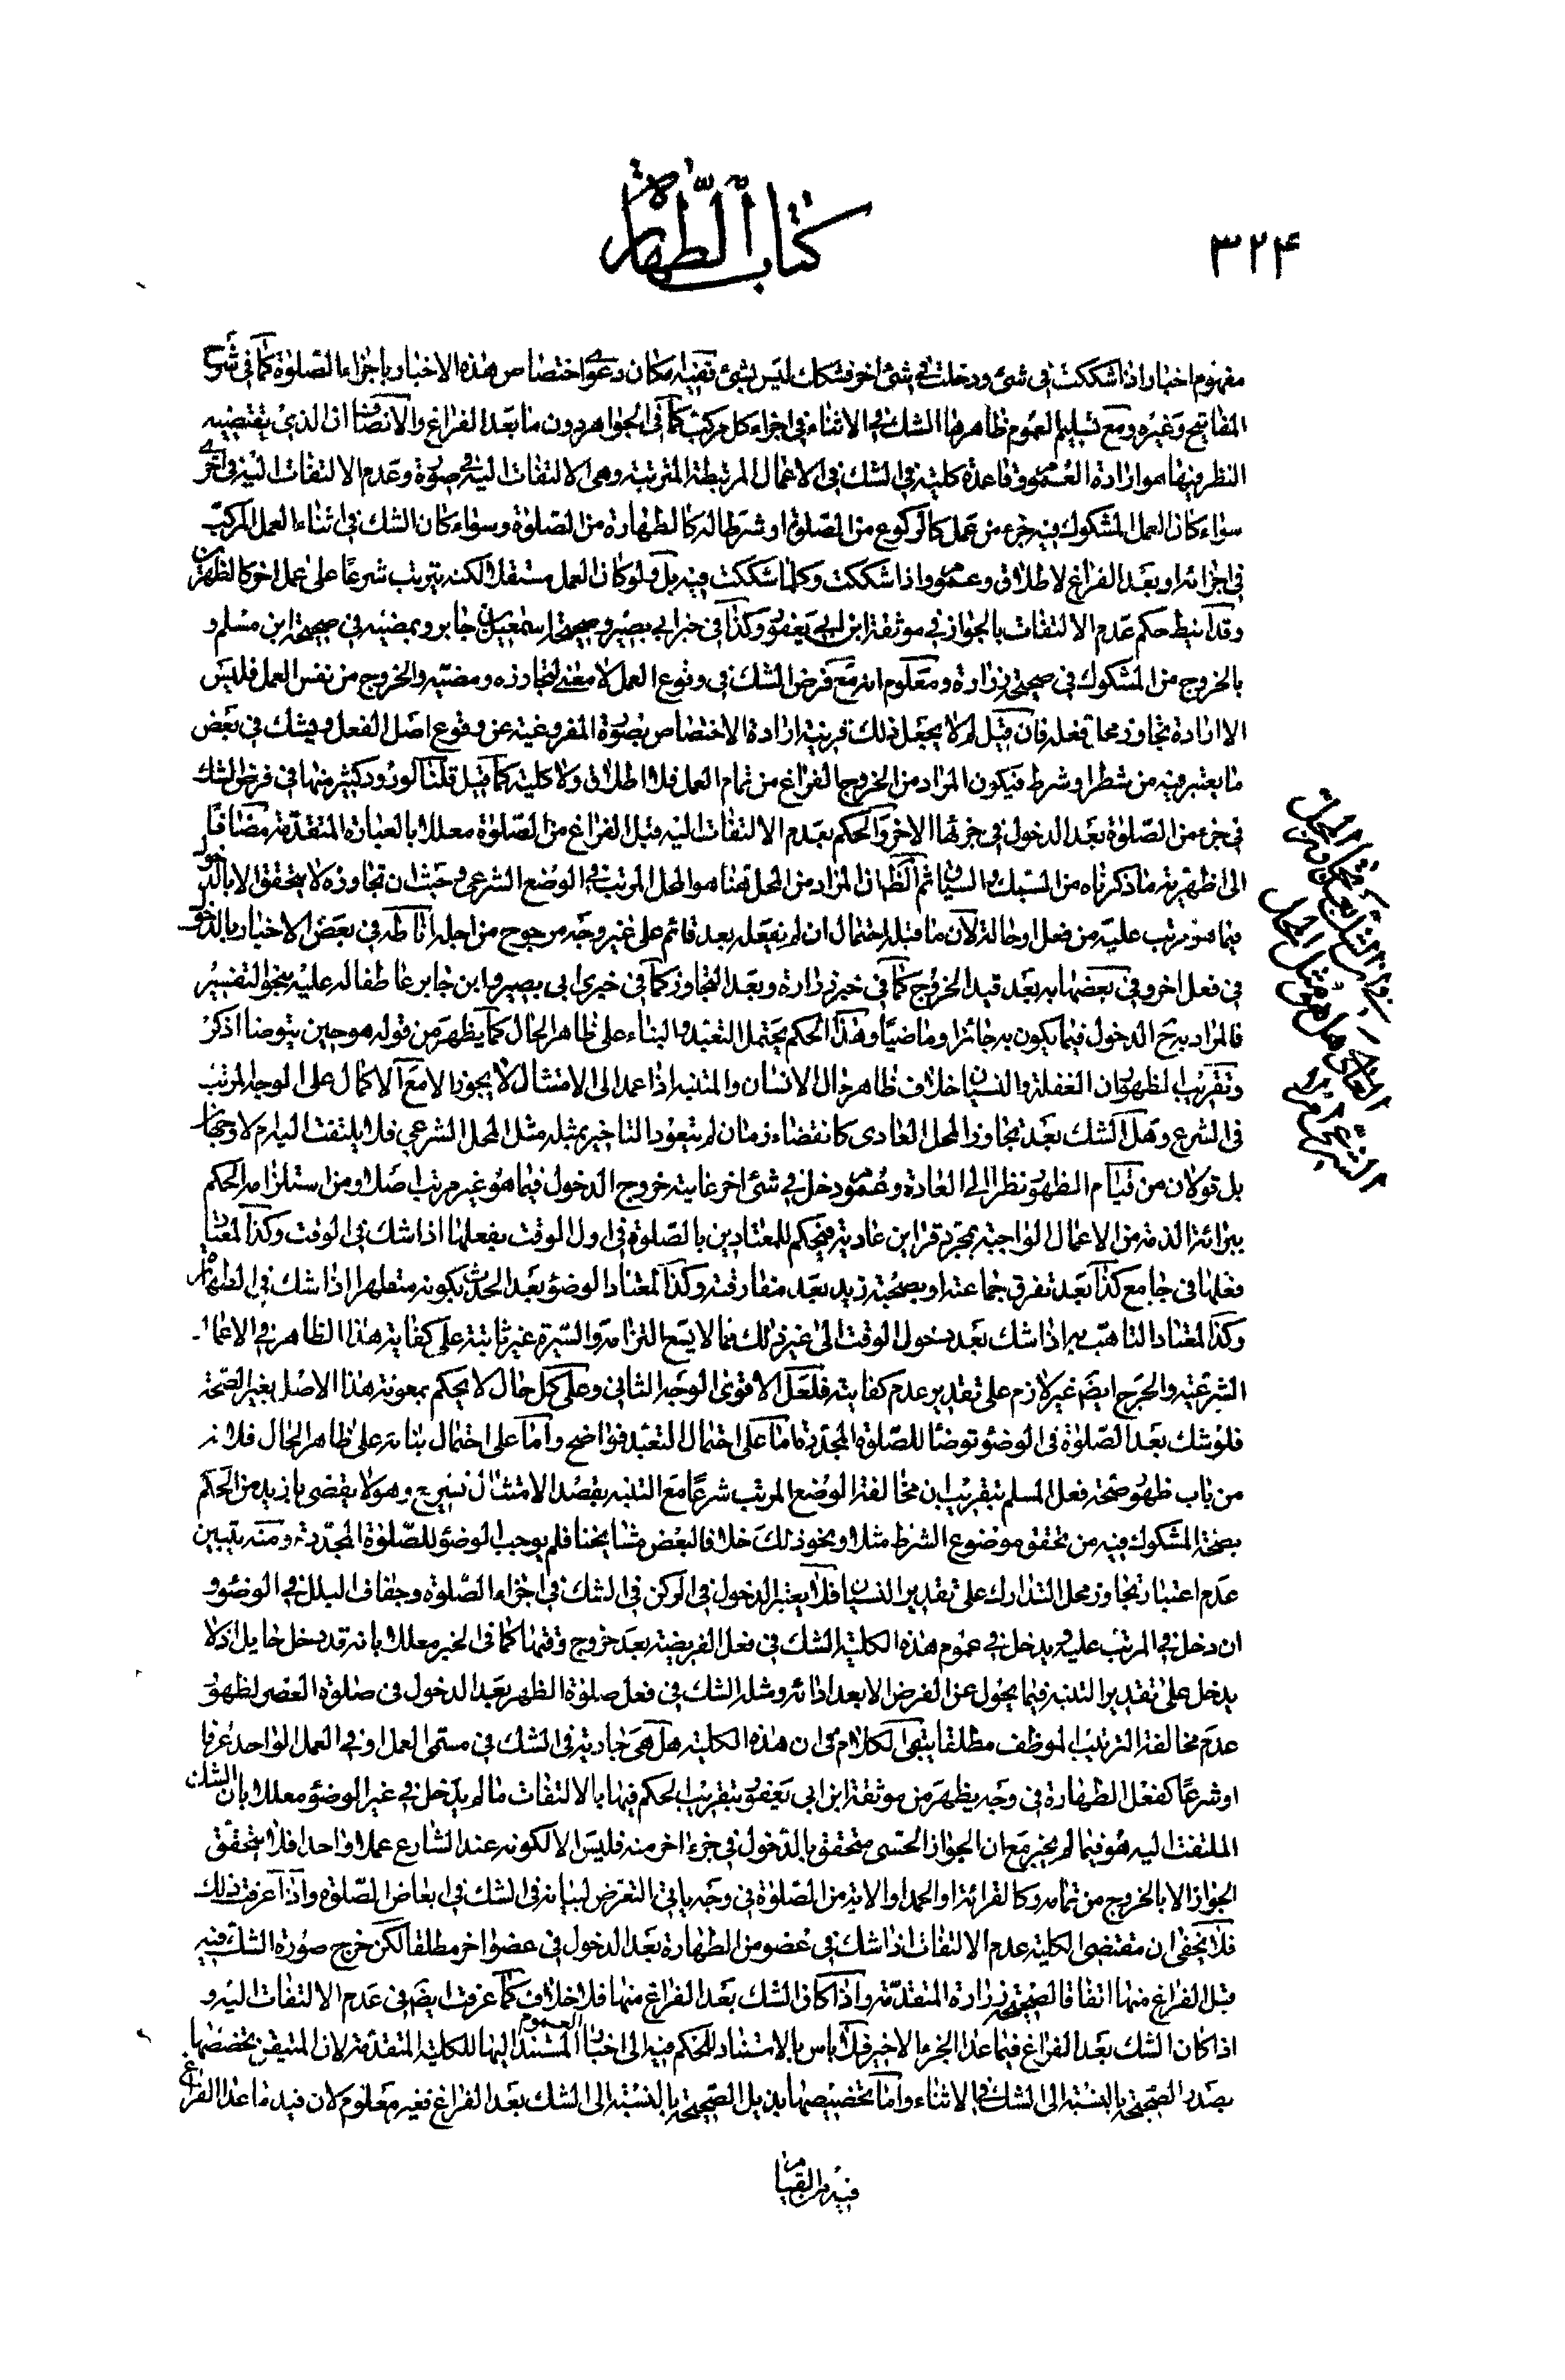 ٣٢۴
كتاب الطهارة
مفهوم اخبار اذا شككت في شئ ودخلت في شئ اخر فشكك ليس بشئ تقنينه مكان دعوى اختصاص هذه الاخبار باجزاء الصلوة كما في شرح
المفاتيح وغيره ومع تسليم العموم ظاهرها الشك في الاثناء في اجزاء كل مركب كما في الجواهر دون ما بعد الفراغ والانصاف ان الذي يقتضيه
النظر فيها هو ارادة العموم وقاعدة كلية في الشك في الاعمال المرتبطة المترتبة وهي الالتفات اليه في صورة وعدم الالتفات اليه في اخرى
سواء كان العمل المشكوك فيه جزء من عمل كالركوع من الصلوة او شرطا له كالطهارة من الصلوة وسواء كان الشك في اثناء العمل المركب
في اجزائه او بعد الفراغ لاطلاق وعموم واذا شككت وكلما شككت فيه بل ولو كان العمل مستقلا لكنه يترتب شرعا على عمل اخر كالظهرين
وقد انيط حكم عدم الالتفات بالجواز في موثقة ابن ابي يعفور وكذا في خبر ابي بصير وصحيحة اسمعيل بن جابر وبمضيه في صحيحة ابن مسلم و
بالخروج من المشكوك في صحيحة زرارة ومعلوم انه مع فرض الشك في وقوع العمل لا معنى لتجاوزه ومضيه والخروج من نفس العمل فليس
الا ارادة تجاوز محل فعله فان قيل لم لا يجعل ذلك قرينة ارادة الاختصاص بصورة المفروغية عن وقوع اصل الفعل ويشك في بعض
ما يعتبر فيه من شطر او شرط فيكون المراد من الخروج الفراغ من تمام العمل فلا اطلاق ولا كلية كما قيل قلنا لورود كثير منها في فرض الشك
في جزء من الصلوة بعد الدخول في جزئها الاخر والحكم بعدم الالتفات اليه قبل الفراغ من الصلوة معللا بالعبارة المتقدمة مضافا
الى اظهرية ما ذكرناه من السبك والسياق ثم الظ ان المراد من المحل هنا هو المحل المرتب في الوضع الشرعي وحيث ان تجاوزه لا يتحقق الا بالدخول
فيما هو مرتب عليه من فعل او حالة لان ما قبله احتمال ان لم يفعله بعد قائم على غير وجه مرجوح من اجله اناطه في بعض الاخبار بالدخول
في فعل اخر وفي بعضها به بعد قيد الخروج كما في خبر زرارة وبعد التجاوز كما في خبري ابي بصير وابن جابر عاطفا له عليه بنحو التفسير
فالمراد به ح الدخول فيما يكون به جائزا وماضيا وهذا الحكم يحتمل التعبد والبناء على ظاهر الحال كما يظهر من قوله هو حين يتوضا اذكر
وتقريب الظهور ان الغفلة والنسيان خلاف ظاهر حال الانسان والمتنبه اذا عمد الى الامتثال لا يجوز الا مع الاكمال على الوجه المرتب
في الشرع وهل الشك بعد تجاوز المحل العادي كانقضاء زمان لم يتعود التاخير بمثله مثل المحل الشرعي فلا يلتفت اليه ام لا وجهان
بل قولان من قيام الظهور نظرا الى العادة وعموم دخل في شئ اخر غايته خروج الدخول فيما هو غير مرتب اصلا ومن استلزامه الحكم
ببرائة الذمة من الاعمال الواجبة بمجرد قراين عادية فيحكم للمعتادين بالصلوة في اول الوقت بفعلها اذا شك في الوقت وكذا المعتاد
فعلها في جامع كذا بعد تفرق جماعته او بصحبة زيد بعد مفارقته وكذا المعتاد الوضوء بعد الحدث بكونه متطهرا اذا شك في الطهارة
وكذا المعتاد التاهب به اذا شك بعد دخول الوقت الى غير ذلك مما لا يسع التزامه والسيرة غير ثابتة على كفاية هذا الظاهر في الاعمال
الشرعية والحرج ايضا غير لازم على تقدير عدم كفايته فلعل الاقوى الوجه الثاني وعلى كل حال لا يحكم بمعونة هذا الاصل بغير الصحة
فلو شك بعد الصلوة في الوضوء توضأ للصلوة المجددة اما على احتمال التعبد فواضح واما على احتمال بنائه على ظاهر الحال فلانه
من باب ظهور صحة فعل المسلم بتقريب ان مخالفة الوضع المرتب شرعا مع التنبه بقصد الامتثال وهو لا يقضي بازيد من الحكم
بصحة المشكوك فيه من تحقق موضوع الشرط مثلا ونحو ذلك خلافا لبعض مشايخنا فلم يوجب الوضوء للصلوة المجددة ومنه يتبين
عدم اعتبار تجاوز محل التدارك على تقدير النسيان فلا يعتبر الدخول في الركن في الشك في اجزاء الصلوة وجفاف البلل في الوضوء و
ان دخل في المرتب عليه ويدخل في عموم هذه الكلية الشك في فعل الفريضة بعد خروج وقتها كما في الخبر معللا بانه قد دخل حايل اذ لا
يدخل على تقدير التنبه فيما يحول عن الفرض الا بعد ادائه ومثله الشك في فعل صلوة الظهر بعد الدخول في صلوة العصر لظهور
عدم مخالفة الترتيب الموظف مطلقا بقي الكلام في ان هذه الكلية هل هي جارية في الشك في مسمى العمل او في العمل الواحد عرفا
او شرعا كفعل الطهارة في وجه يظهر من موثقة ابن ابي يعفور بتقريب الحكم فيها بالالتفات ما لم يدخل في غير الوضوء معللا بان الشك
الملتفت اليه هو فيما لم يجز مع ان الجواز الحسي متحقق بالدخول في جزء اخر منه فليس الا لكونه عند الشارع عملا واحدا فلا يتحقق
الجواز الا بالخروج من تمامه وكالقرائة او الحمد او الاية من الصلوة في وجه ياتي التعرض لبيانه في الشك في ابعاض الصلوة واذا عرفت ذلك
فلا يخفى ان مقتضى الكلية عدم الالتفات اذا شك في عضو من الطهارة بعد الدخول في عضو اخر مطلقا لكن خرج صورة الشك فيه
قبل الفراغ منها اتفاقا لصحيحة زرارة المتقدمة واذا كان الشك بعد الفراغ منها فلا خلاف كما عرفت ايضا في عدم الالتفات اليه و
اذا كان الشك بعد الفراغ فيما عدا الجزء الاخير فلا باس بالاستناد للحكم فيه الى اخبار العموم المستند اليها للكلية المتقدمة لان المتيقن تخصيصها
بصدر الصحيحة بالنسبة الى الشك في الاثناء واما تخصيصها بذيل الصحيحة بالنسبة الى الشك بعد الفراغ فغير معلوم لان قيد ما عدا الفراغ
فيه من القيام